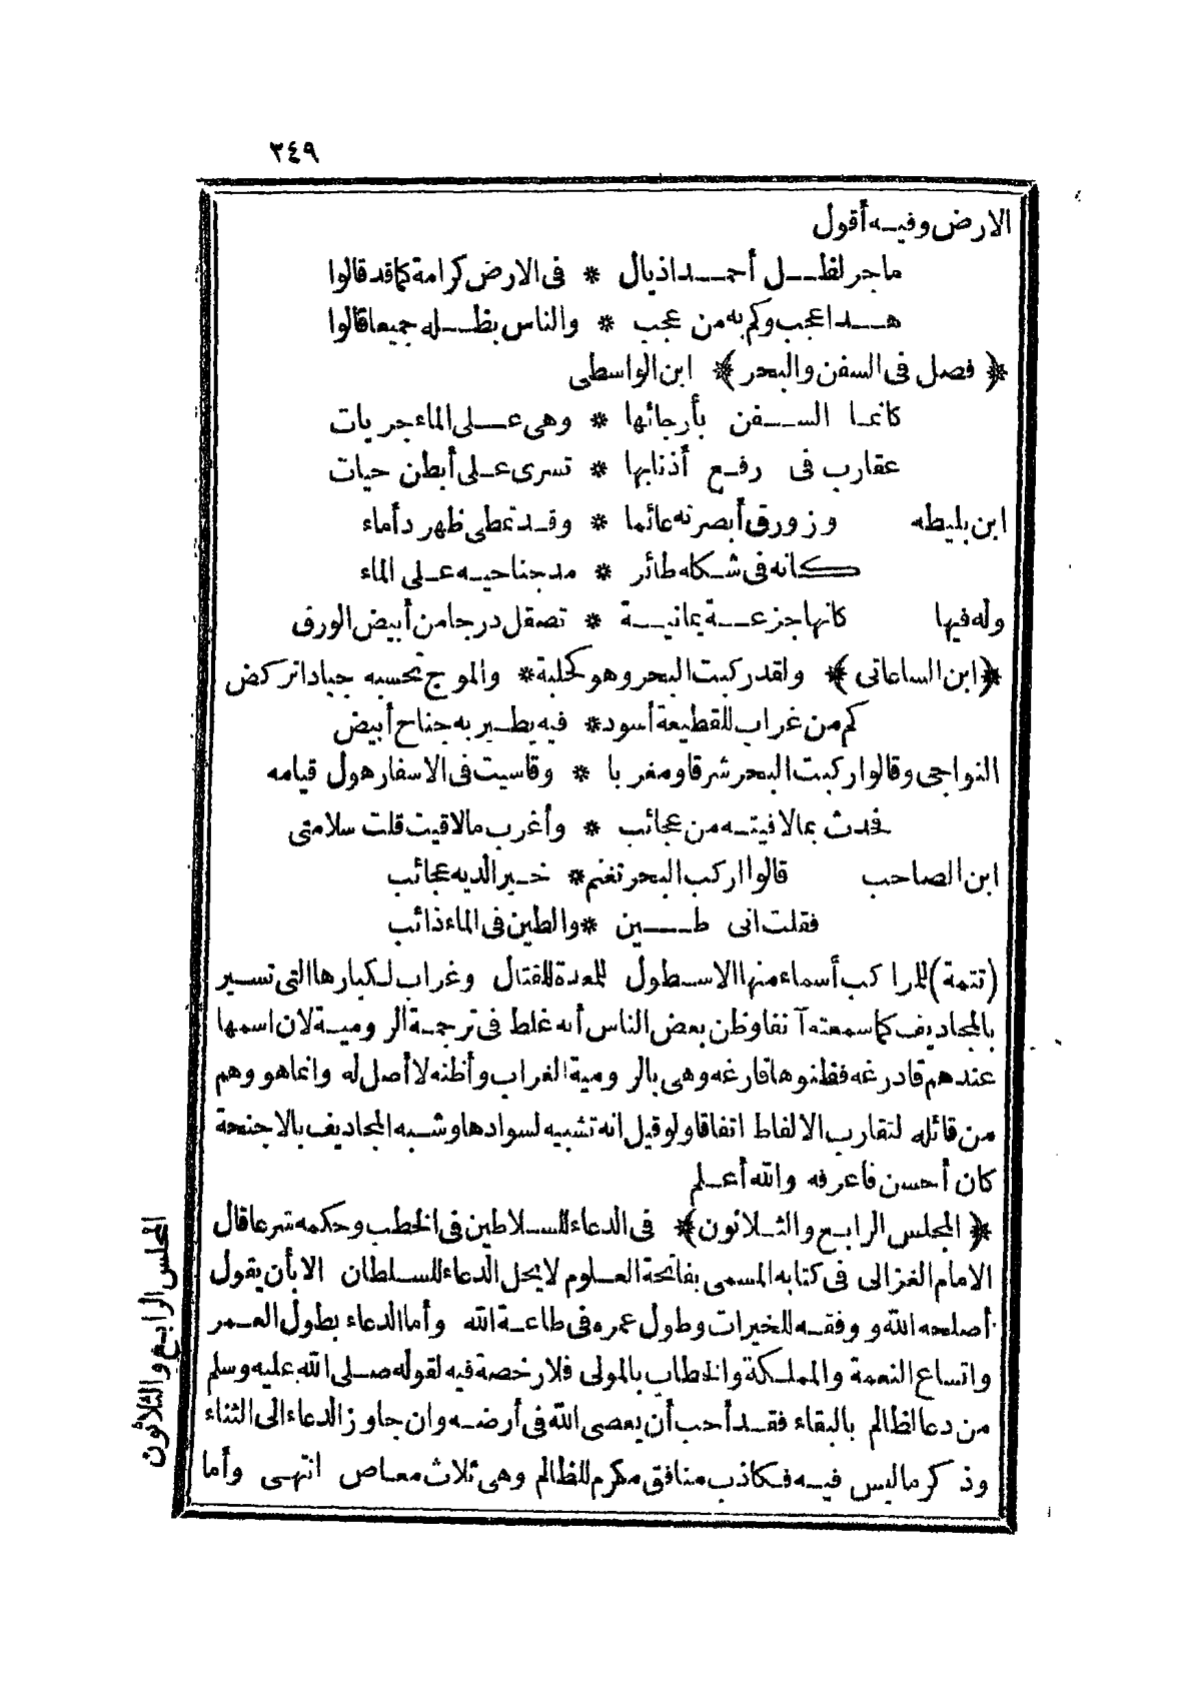 ٢٤٩
الارض وفيه أقول
ماجر لظل أحمد اذيال * فى الارض كرامة كما قد قالوا
هذا عجب وكم به من عجب * والناس بظله جميعا قالوا
﴿ فصل فى السفن والبحر ﴾ ابن الواسطى
كانما السفن بأرجائها * وهى على الماء جريات
عقارب فى رفع أذنابها * تسرى على أبطن حيات
ابن بليطه وزورق أبصرته عائما * وقد تمطى ظهر دأماء
كانه فى شكله طائر * مد جناحيه على الماء
وله فيها كانها جزعة يمانية * تصقل درجا من أبيض الورق
﴿ ابن الساعاتى ﴾ ولقد ركبت البحر وهو كحلبة * والموج تحسبه جيادا تركض
كم من غراب للقطيعة أسود * فيه يطير به جناح أبيض
النواجى وقالوا ركبت البحر شرقا ومغربا * وقاسيت فى الاسفار هول قيامه
فحدث بما لاقيته من عجائب * وأغرب ما لاقيت قلت سلامتى
ابن الصاحب قالوا اركب البحر تغنم * خير الديه عجائب
فقلت انى طين * والطين فى الماء ذائب
(تتمة) للمراكب أسماء منها الاسطول للمعدة للقتال وغراب لكبارها التى تسير
بالمجاديف كما سمعته آنفا وظن بعض الناس أنه غلط فى ترجمة الرومية لان اسمها
عندهم قادرغه فظنوها قارغه وهى بالرومية الغراب وأظنه لا أصل له وانما هو وهم
من قائله لتقارب الالفاظ اتفاقا ولو قيل انه تشبيه لسوادها وشبه المجاديف بالاجنحة
كان أحسن فاعرفه والله أعلم
﴿ المجلس الرابع والثلاثون ﴾ فى الدعاء للسلاطين فى الخطب وحكمه شرعا قال
الامام الغزالى فى كتابه المسمى بفاتحة العلوم لا يحل الدعاء للسلطان الا بأن يقول
أصلحه الله ووفقه للخيرات وطول عمره فى طاعة الله وأما الدعاء بطول العمر
واتساع النعمة والمملكة والخطاب بالمولى فلا رخصة فيه لقوله صلى الله عليه وسلم
من دعا لظالم بالبقاء فقد أحب أن يعصى الله فى أرضه وان جاوز الدعاء الى الثناء
وذكر ما ليس فيه فكاذب منافق مكرم للظالم وهى ثلاث معاص انتهى وأما
المجلس الرابع والثلاثون